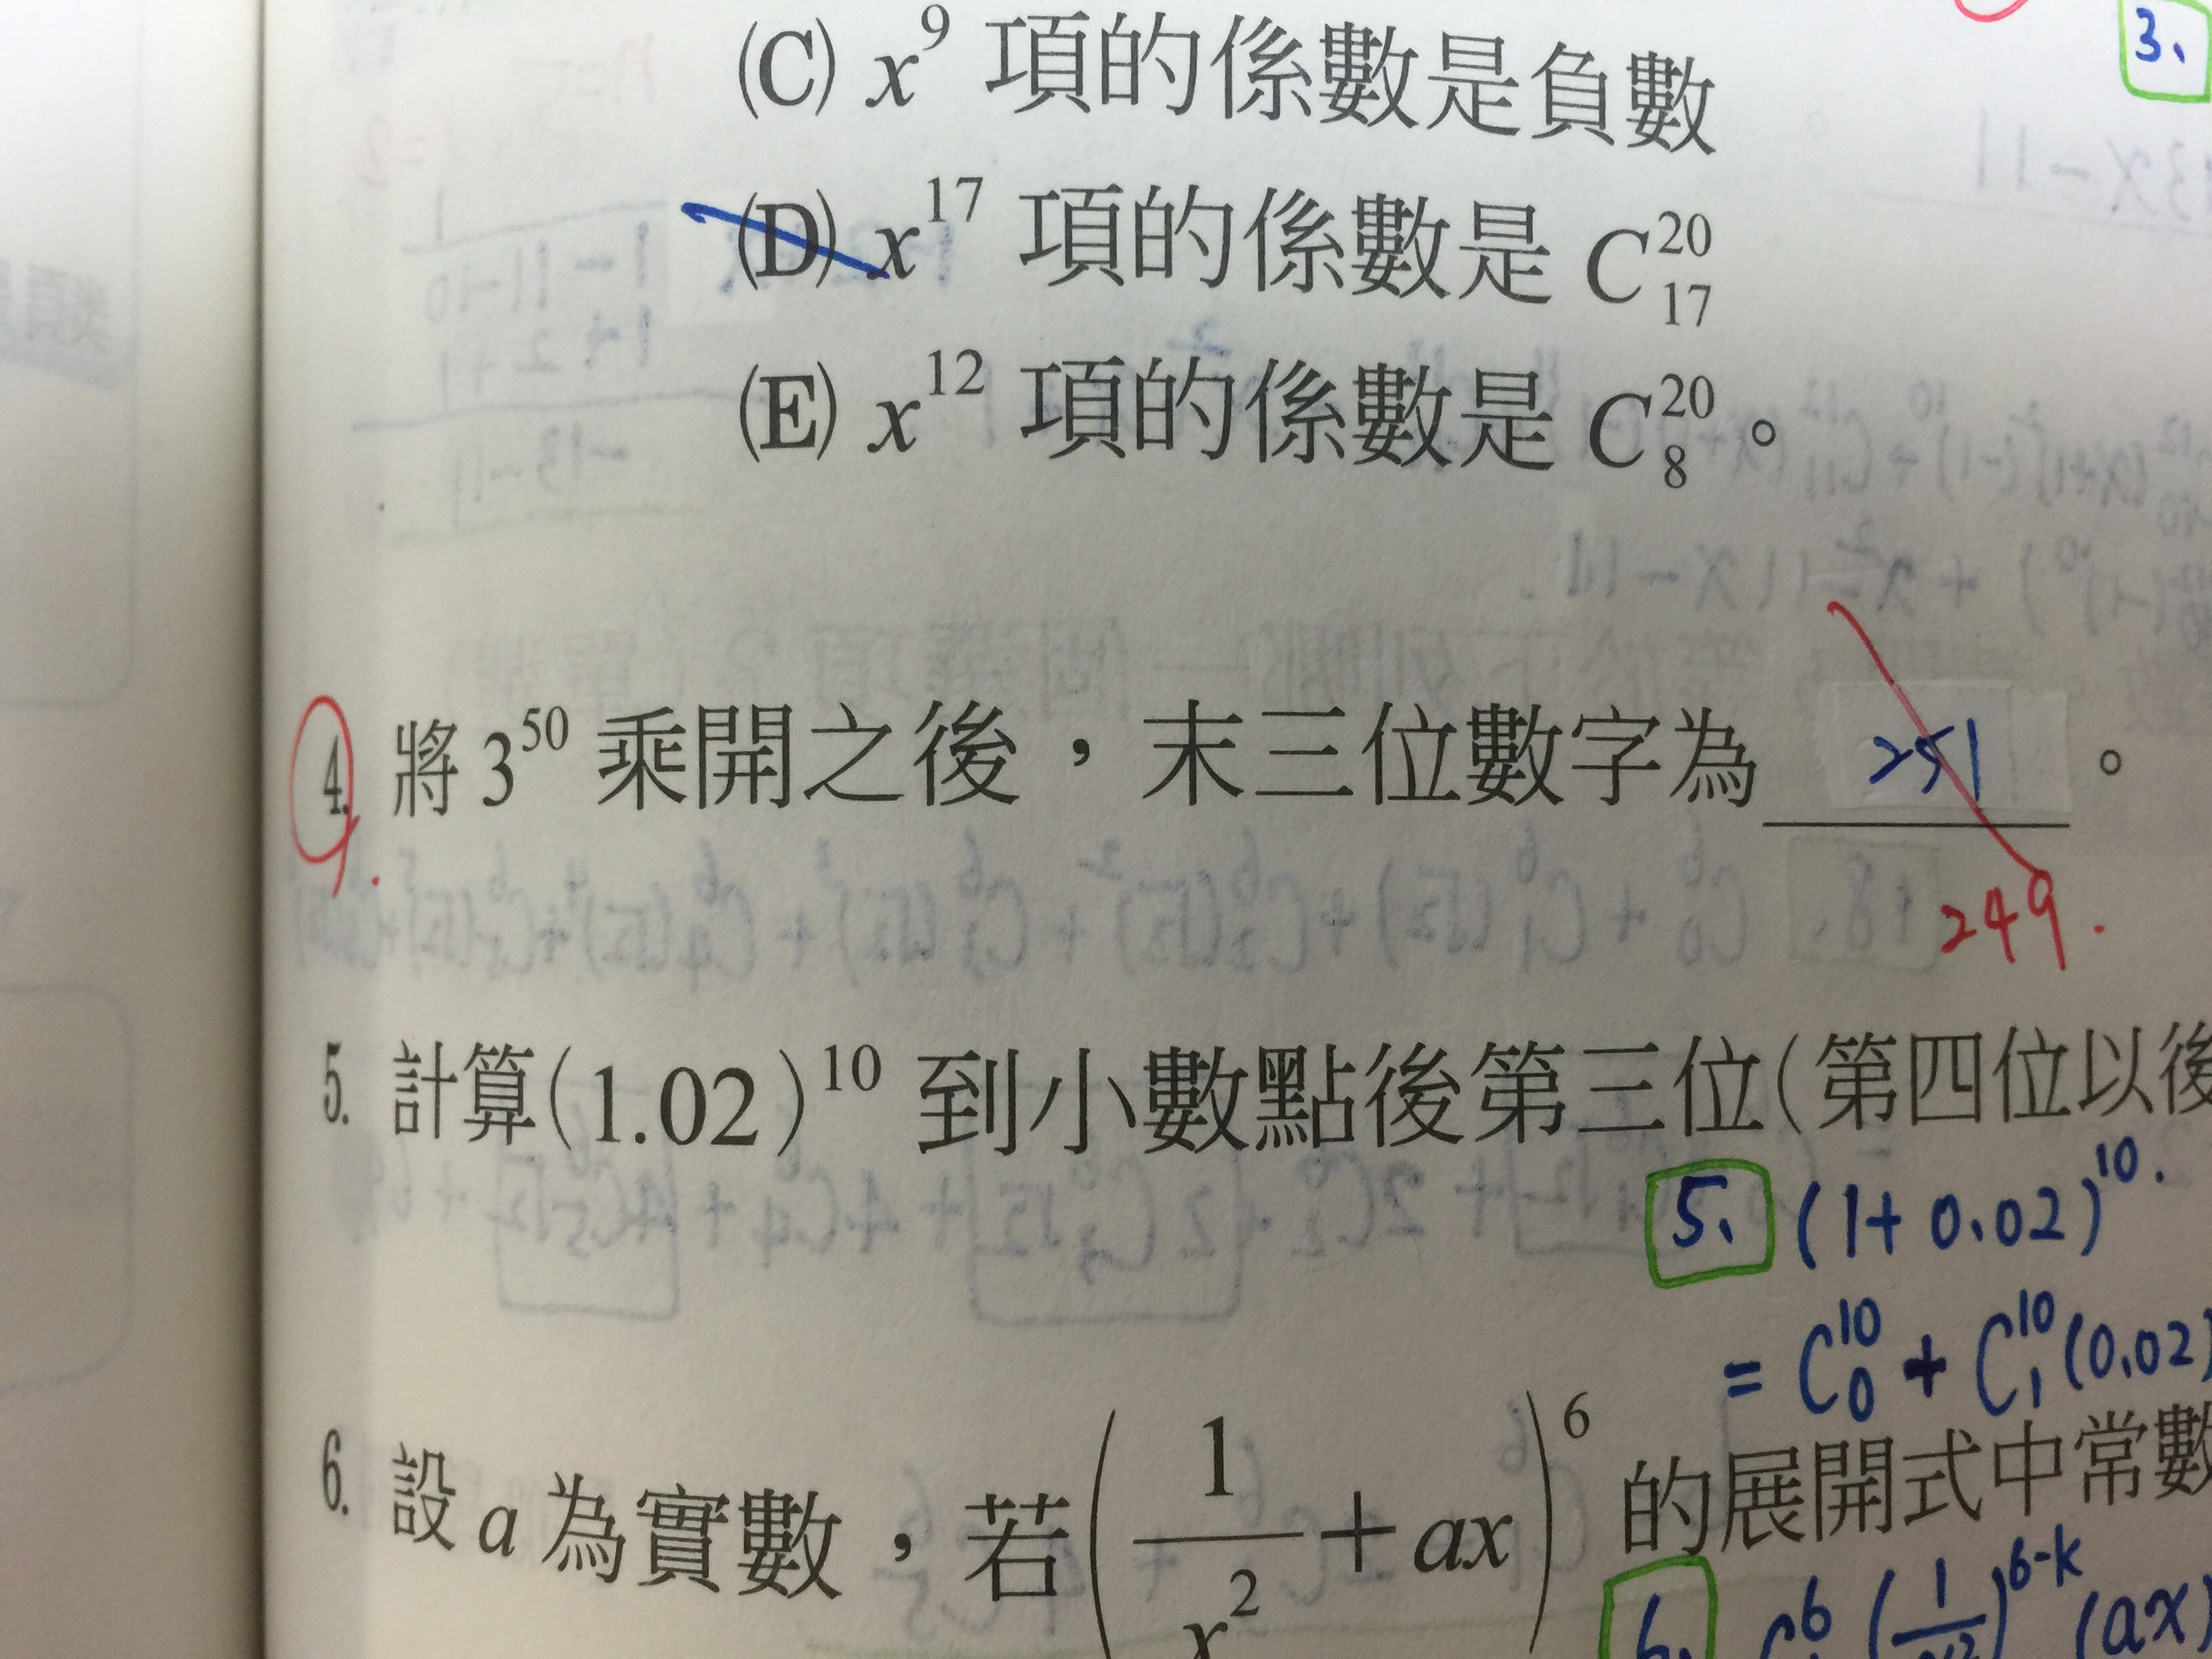 3、
(C) x⁹ 項的係數是負數
(D) x¹⁷ 項的係數是 C²⁰₁₇
(E) x¹² 項的係數是 C²⁰₈。
4. 將 3⁵⁰ 乘開之後，末三位數字為 251 。
249.
5. 計算(1.02)¹⁰ 到小數點後第三位(第四位以後
5、 (1+0.02)¹⁰.
= C¹⁰₀ + C¹⁰₁(0.02)
6. 設 a 為實數，若(1/x² + ax)⁶ 的展開式中常數
6、 C⁶ (1/x²)⁶⁻ᵏ (ax)